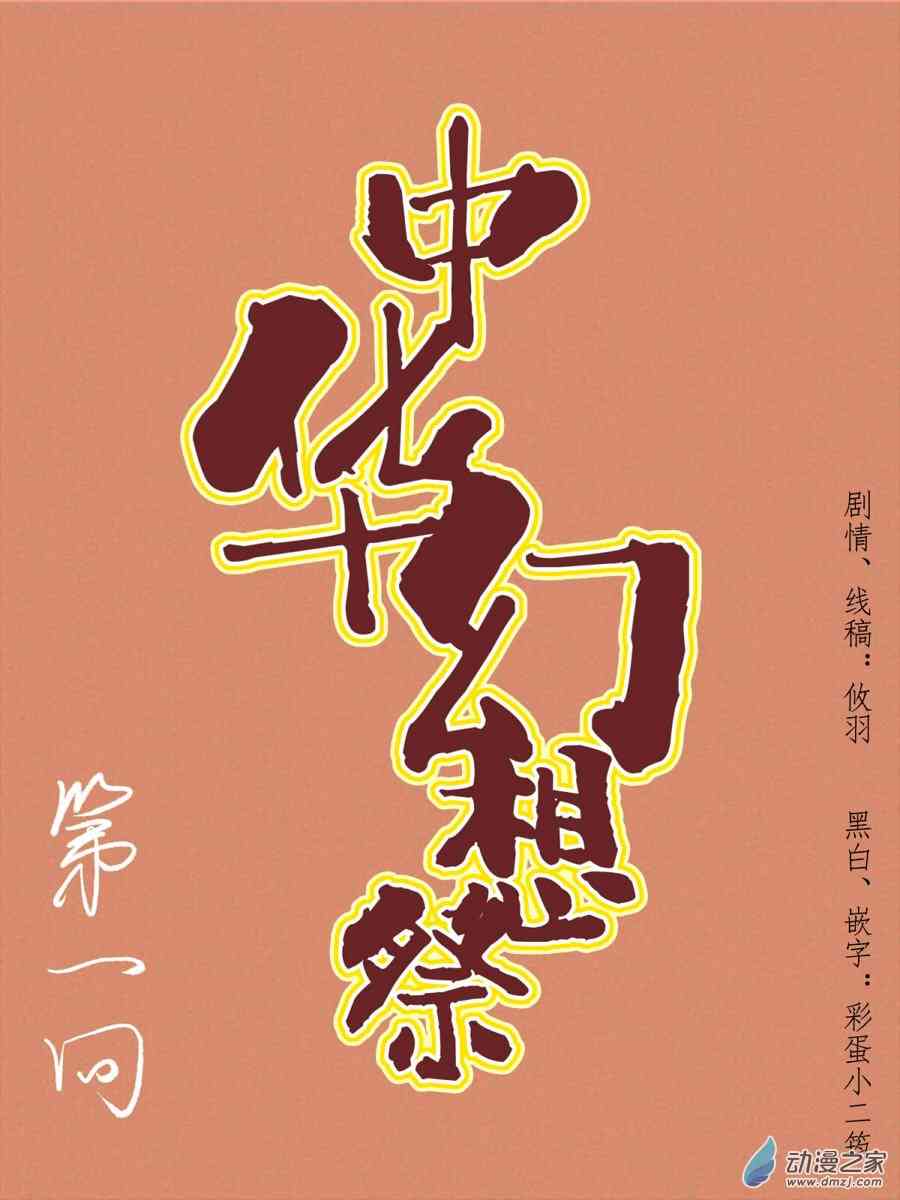 中华幻想祭
剧情、线稿：攸羽 黑白、嵌字：彩蛋小二
第一问
动漫之家
www.dmzj.com